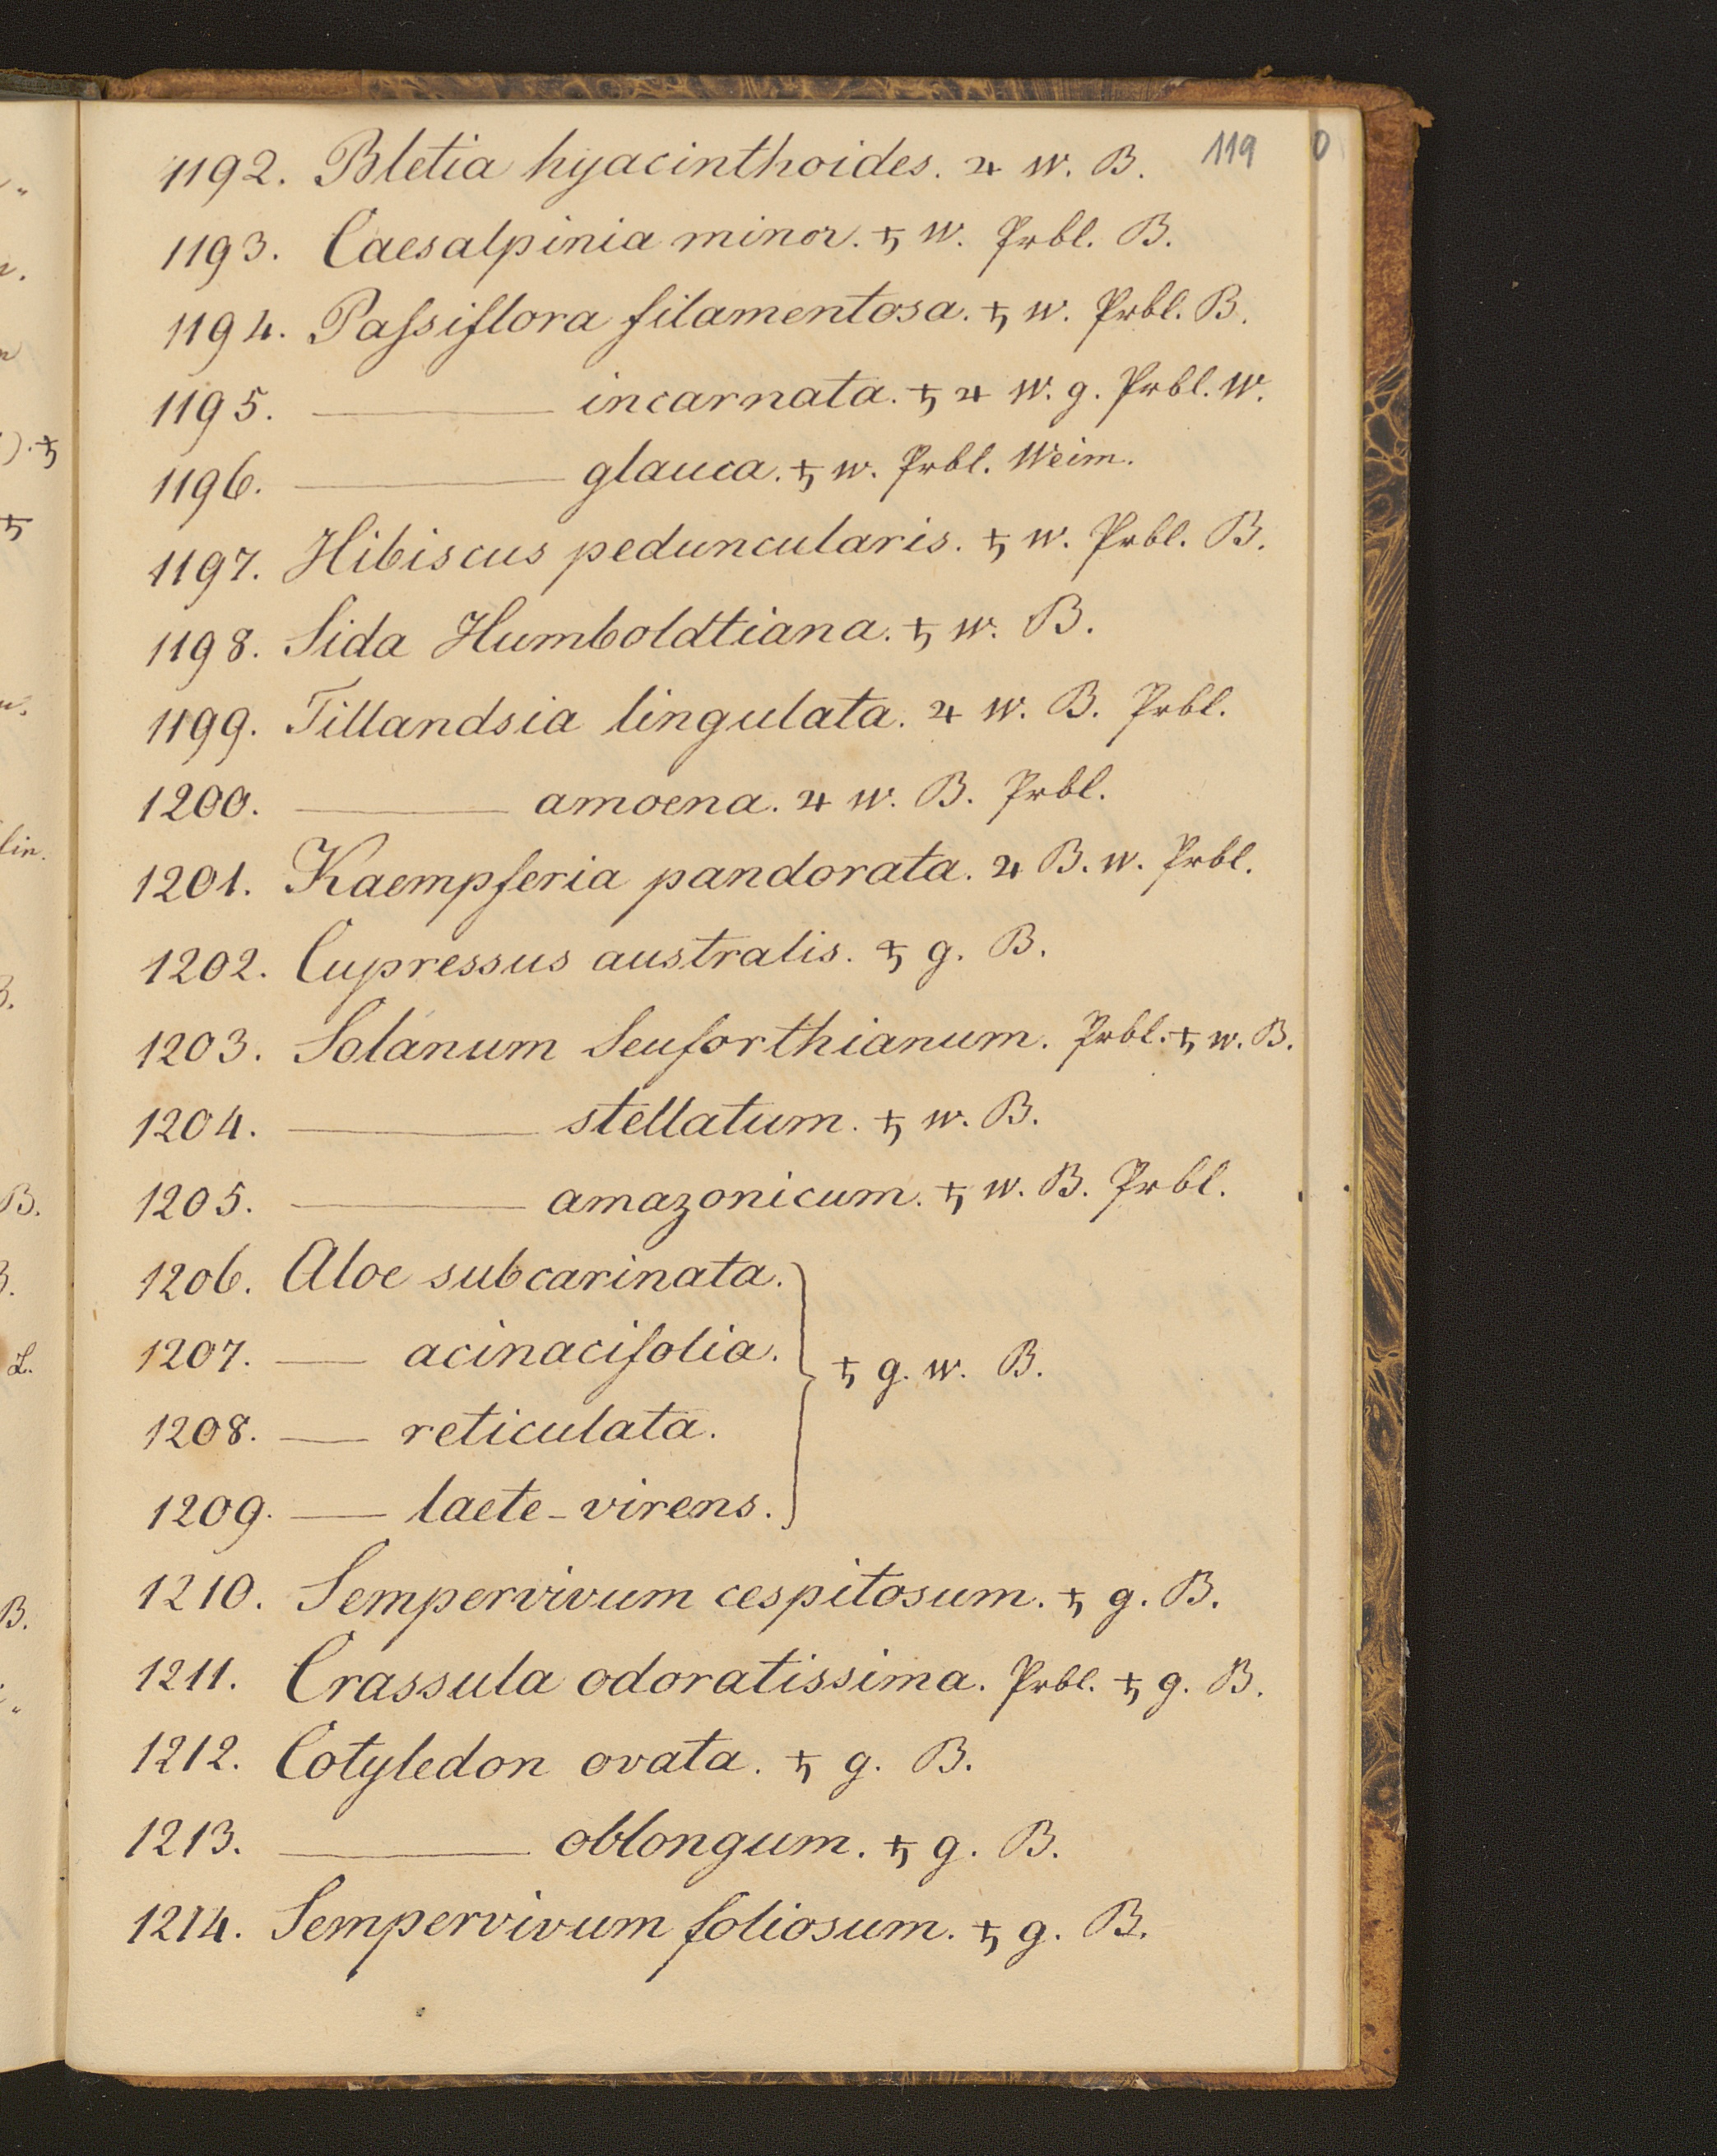 119
0
1192. Bletia hyacinthoides. ♃ w. B.
1193. Caesalpinia minor. ♄ w. Prbl. B.
1194. Paſsiflora filamentosa. ♄ w. Prbl. B.
1195. ——— incarnata. ♄ ♃ w. g. Prbl. W.
1196. ——— glauca. ♄ w. Prbl. Weim.
1197. Hibiscus peduncularis. ♄ w. Prbl. B.
1198. Sida Humboldtiana. ♄ w. B.
1199. Tillandsia lingulata. ♃ w. B. Prbl.
1200. ——— amoena. ♃ w. B. Prbl.
1201. Kaempferia pandorata. ♃ B. w. Prbl.
1202. Cupressus australis. ♄ g. B.
1203. Solanum Seuforthianum. Prbl. ♄ w. B.
1204. ——— stellatum. ♄ w. B.
1205. ——— amazonicum. ♄ w. B. Prbl.
1206. Aloe subcarinata.
1207. — acinacifolia. ♄ g. w. B.
1208. — reticulata.
1209. — laete-virens.
1210. Sempervivum cespitosum. ♄ g. B.
1211. Crassula odoratissima. Prbl. ♄ g. B.
1212. Cotyledon ovata. ♄ g. B.
1213. ——— oblongum. ♄ g. B.
1214. Sempervivum foliosum. ♄ g. B.